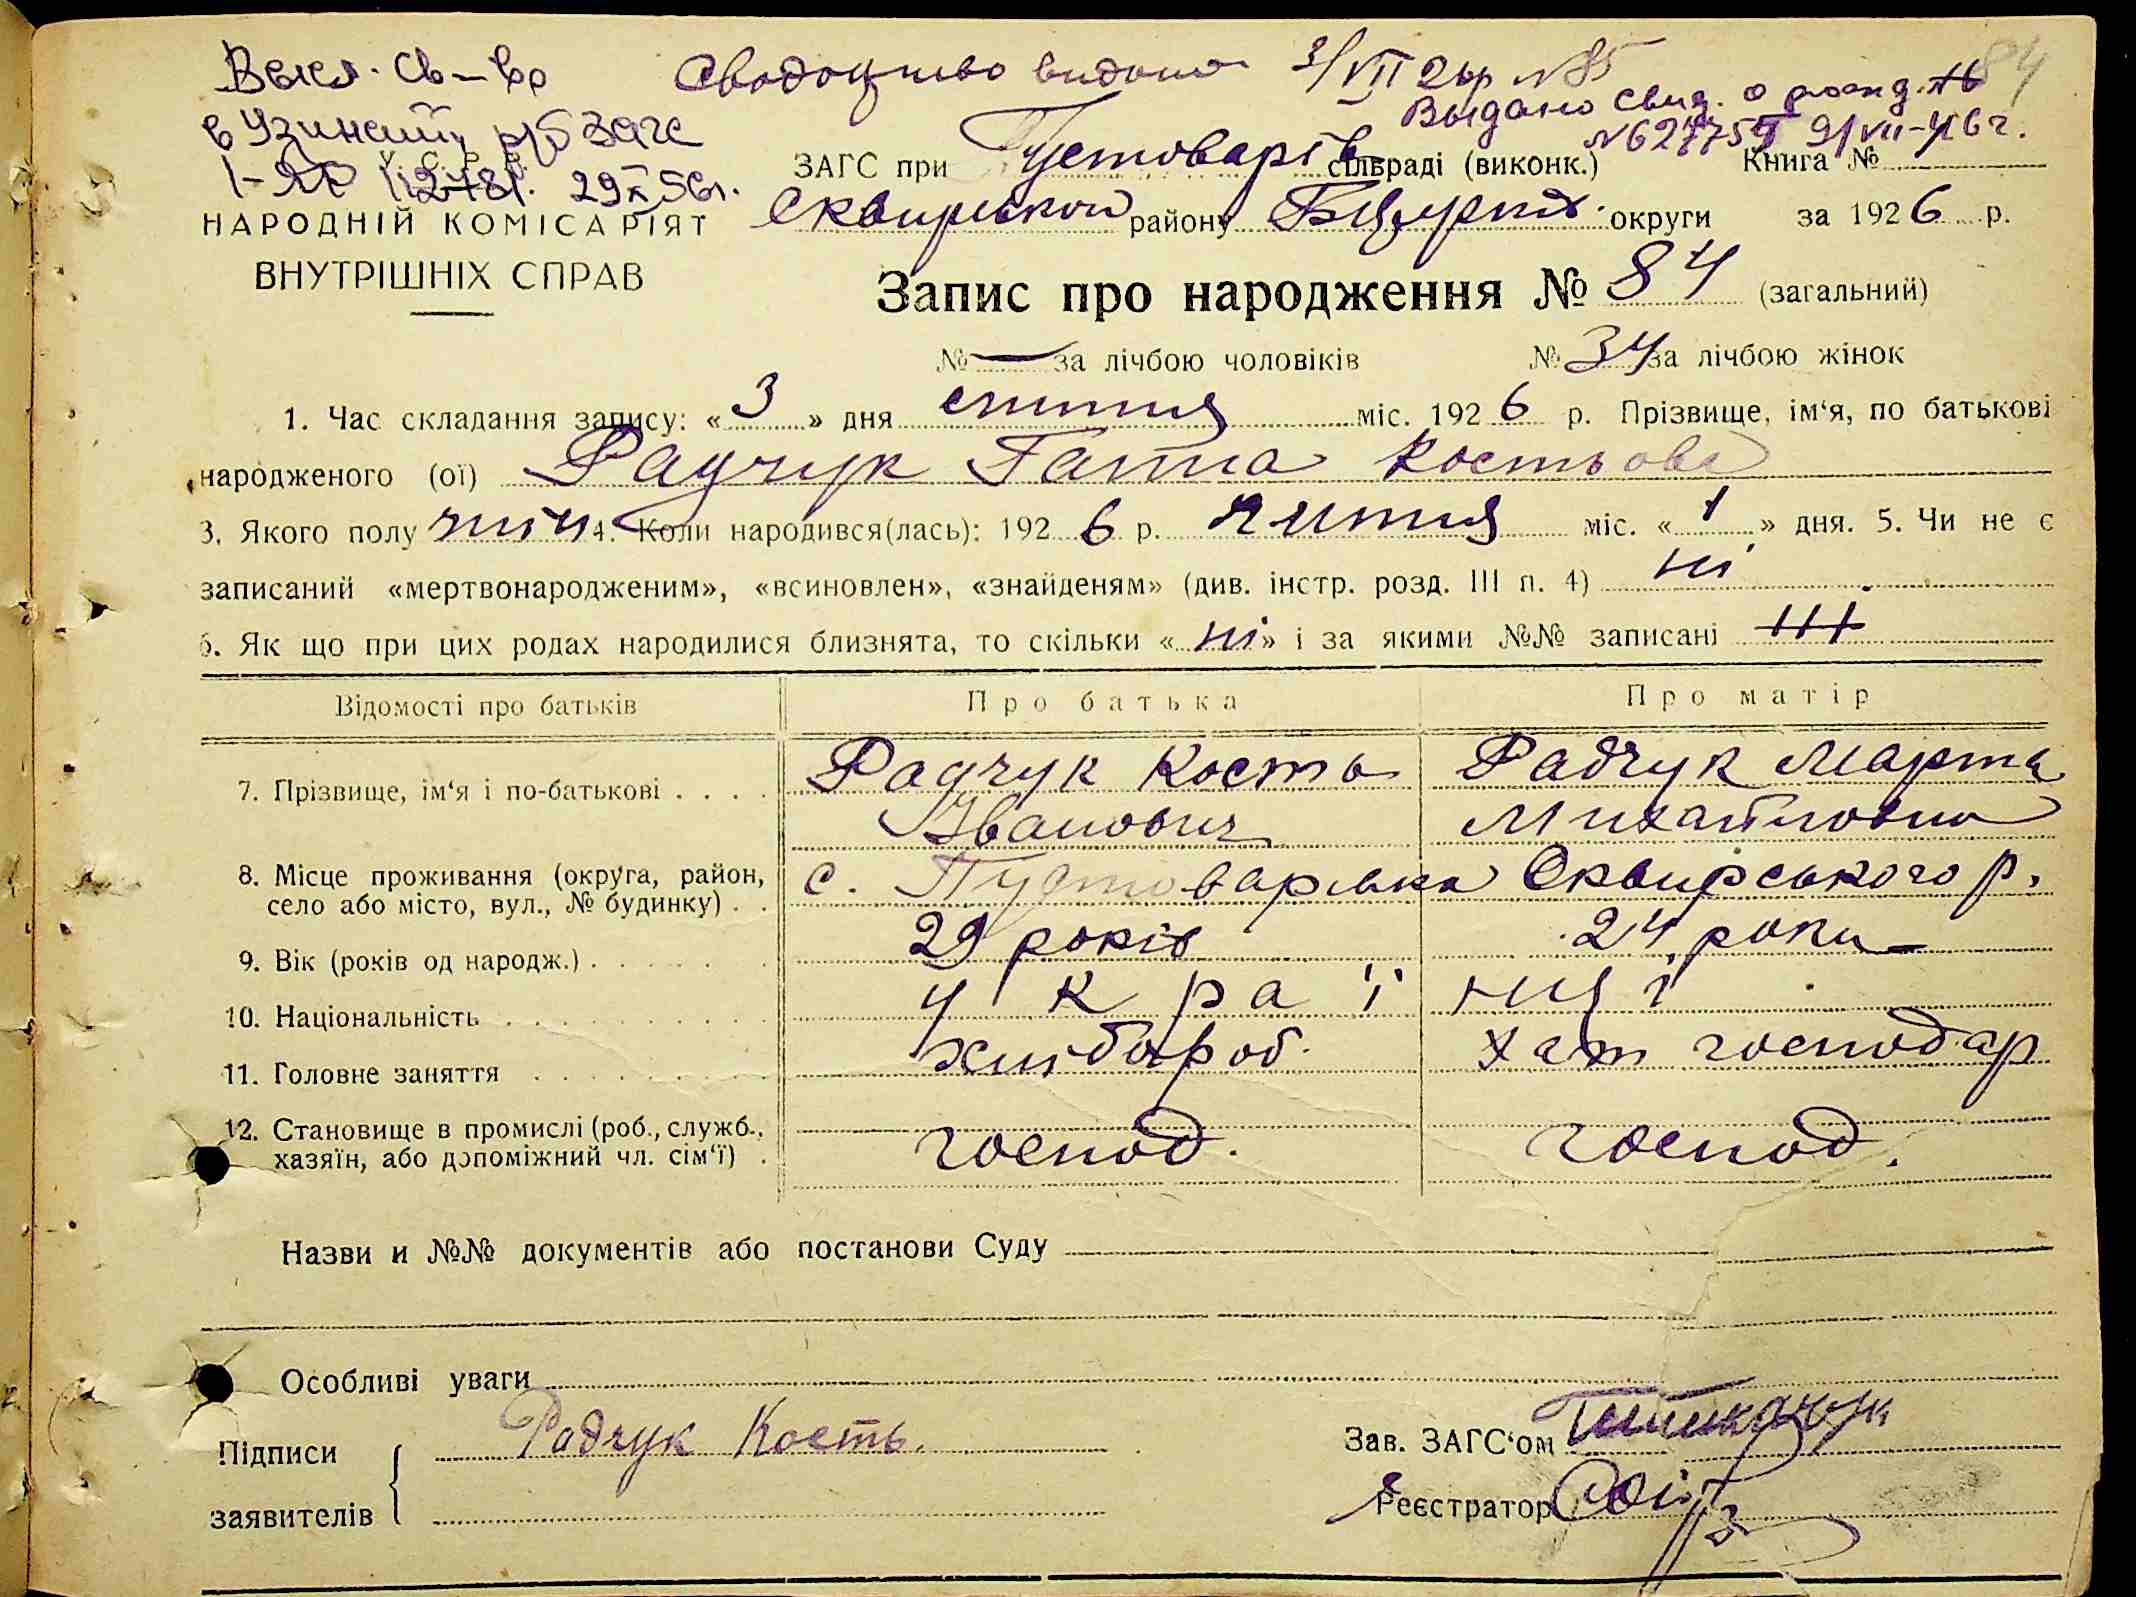 Высл. Св-во Свидоцтво видано 3/VII 26р №85 84
в Узинский р/б Загс Выдано свид. о рожд.
I-ЯР 29/X 56г. 9/VII-46г.
У.С.Р.Р. ЗАГС при Пустоварів сільраді (виконк.) Книга №
НАРОДНІЙ КОМІСАРІЯТ Сквирськом району Б Церкв. округи за 1926 р.
ВНУТРІШНІХ СПРАВ
Запис про народження № 84 (загальний)
№ — за лічбою чоловіків № 34 за лічбою жінок
1. Час складання запису: «3» дня липня міс. 1926 р. Прізвище, ім‘я, по батькові
народженого (ої) Радчук Ганна Костьова
3. Якого полу жіноч 4. Коли народився(лась): 1926 р. липня міс. «1» дня. 5. Чи не є
записаний «мертвонародженим», «всиновлен», «знайденям» (див. інстр. розд. III п. 4) ні
6. Як що при цих родах народилися близнята, то скільки «ні» і за якими №№ записані
Відомості про батьків Про батька Про матір
7. Прізвище, ім‘я і по-батькові . . . . Радчук Кость Радчук Марта
Іванович Михайловна
8. Місце проживання (округа, район, с. Пустоварівка Сквирського р.
село або місто, вул., № будинку) . .
9. Вік (років од народж.) . . . . . . 29 років 24 роки
10. Національність . . . . . . . . . . укра ї нці
11. Головне заняття . . . . . . . . . хлібороб. хат господар
12. Становище в промислі (роб., служб., господ. господ.
хазяїн, або допоміжний чл. сім‘ї) .
Назви и №№ документів або постанови Суду
Особливі уваги
Підписи Радчук Кость. Зав. ЗАГС‘ом
заявителів Реєстратор